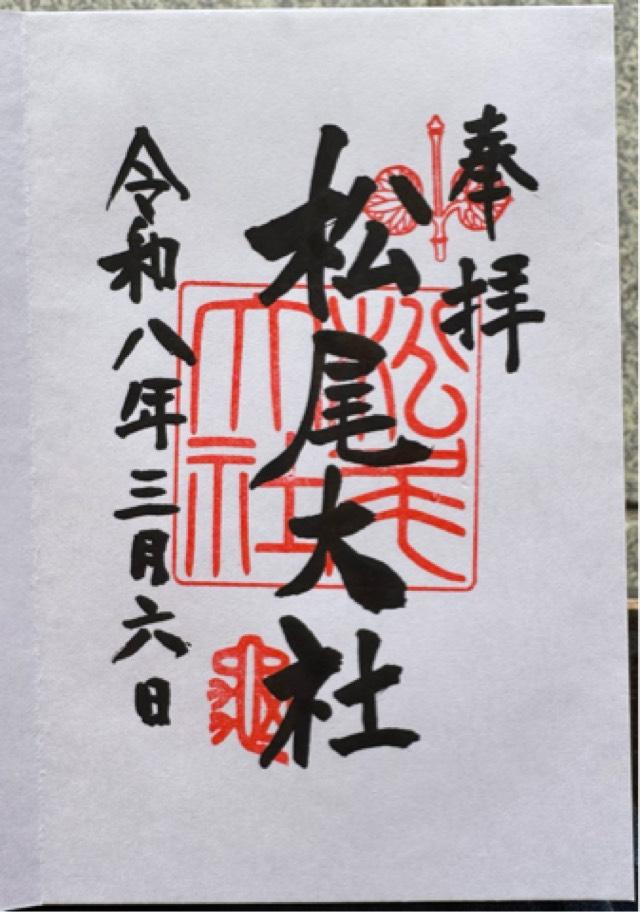 奉拝
松尾大社
令和八年三月六日
松尾大社